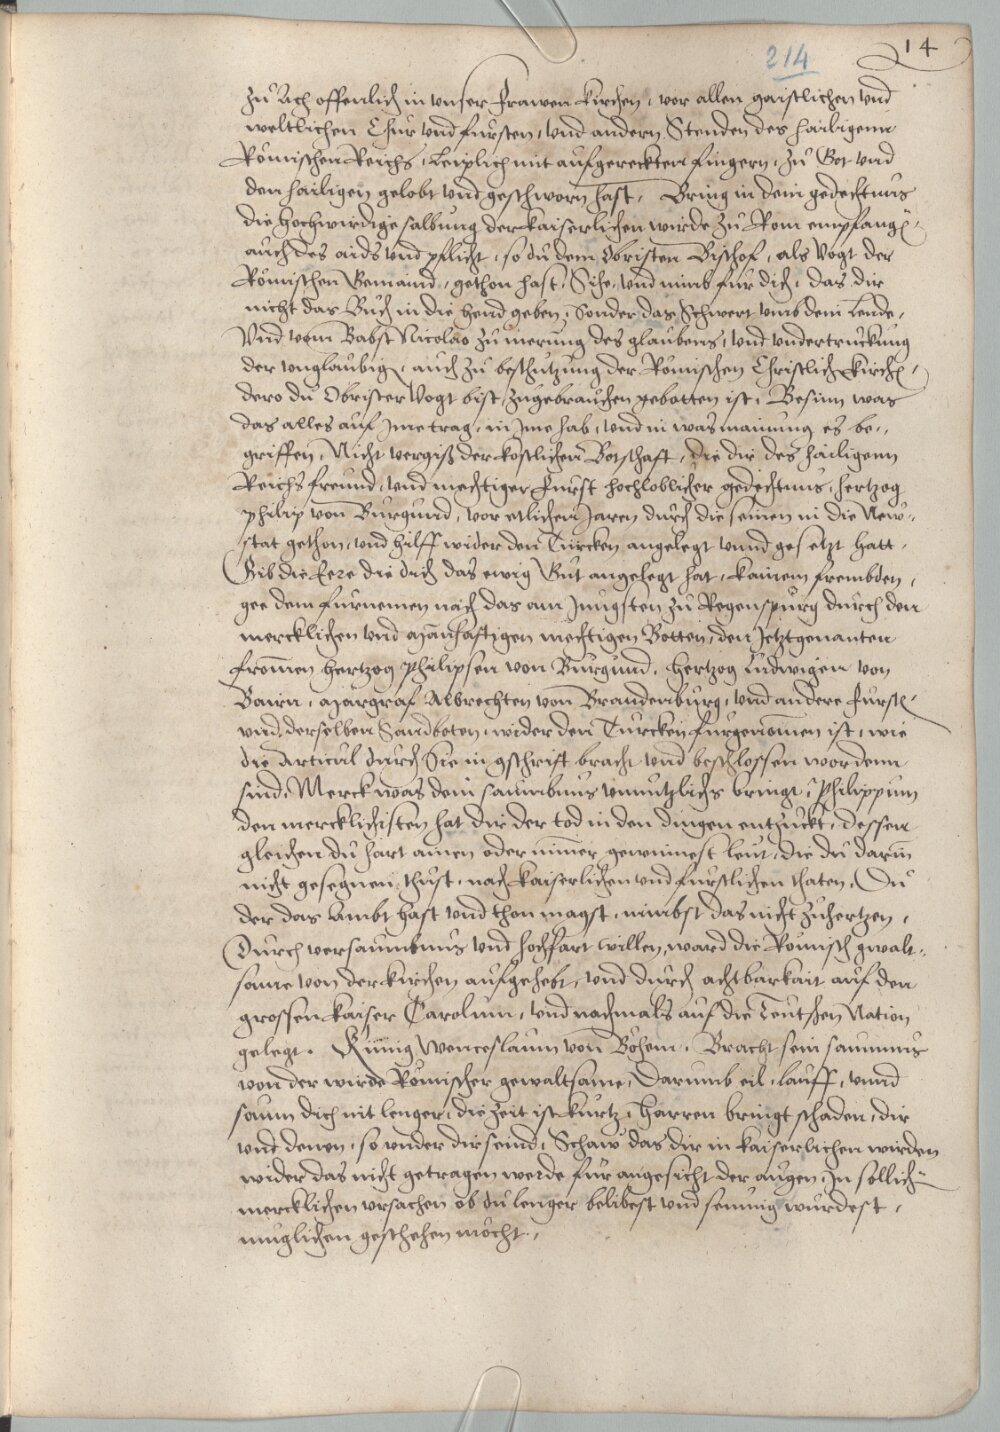 214
14
zu Ach offenlich in unser Frawen Kirchen, vor allen gaistlichen und
weltlichen Chur und fursten, und andern Stenden des hailigenn
Römischen Reichs, Leiplich mit aufgereckten fingern, zu Got und
den hailigen gelobt und geschworn hast, Bring in dein gedechtnus
die hochwirdige salbung der kaiserlichen wirde zu Rom empfangē,
auch des aids und pflicht, so du dem Obristen Bischof, als Vogt der
Römischen Gemaind, gethon hast, Sihe, und nimb fur dich, das dir
nicht das Buch in die hend geben, Sonder das Schwert umb dein Lende,
Und vom Babst Nicolao zu merung des glaubens, und undertruckung
der unglaubigē, auch zu beschutzung der Römischen Christlichē Kirchē,
dero du Obrister Vogt bist, zugebrauchen gebotten ist, Besinn was
das alles auf Ime trag, in Ime hab, und in was mainung es be„
griffen, Nicht vergiß der kostlichen Botschaft, die dir des hailigenn
Reichs freund, und mechtiger Furst hochloblicher gedechtnus, hertzog
philip von Burgund, vor etlichen Jaren durch die seinen in die New„
stat gethon, und hilff wider den Turcken angelegt unnd gesetzt hatt,
Gib die Eere die dich das ewig Gut angelegt hat, kainem frembden,
gee dem furnemen nach das am Jungsten zu Regenspurg durch den
mercklichen und manhaftigen mechtigen Botten, den Jetztgenanten
fromen hertzog philipsen von Burgund, hertzog Ludwigen von
Bairn, Margraf Albrechten von Brandenburg, und andere Furstē
und derselben Sandboten, wider den Turcken furgenomen ist, wie
die Articul durch Sie in gschrift bracht und beschlossen wordenn
sind, Merck was dein saumbnus unnutzlichs bringt, Philippum
den mercklichisten hat dir der tod in den dingen entzuckt, dessen
gleichen du hart ainen oder nimer gewinnest leut, die du darin
nicht gesegnen thust, nach kaiserlichen und furstlichen thaten, Du
der das Ambt hast und thon magst, nimbst das nicht zuhertzen,
Durch versaumbnus und hochfart willen, ward die Römisch gwalt„
same von der kirchen aufgehebt, und durch achtbarkait auf den
grossen kaiser Carolum, und nachmals auf die Teutschen Nation
gelegt. Kunig Wenceslaum von Böhem, Bracht sein saumnus
von der wirde Römischer gewaltsame, Darumb eil, lauff, unnd
saum dich nit lenger, die zeit ist kurtz, Harren bringt schaden, dir
und denen, so under dir seind, Schaw das dir in kaiserlichen wirden
wider das nicht getragen werde fur angesicht der augen, In sollichē
mercklichen ursachen ob du lenger belibest und seumig wurdest,
muglichen geschehen möcht,